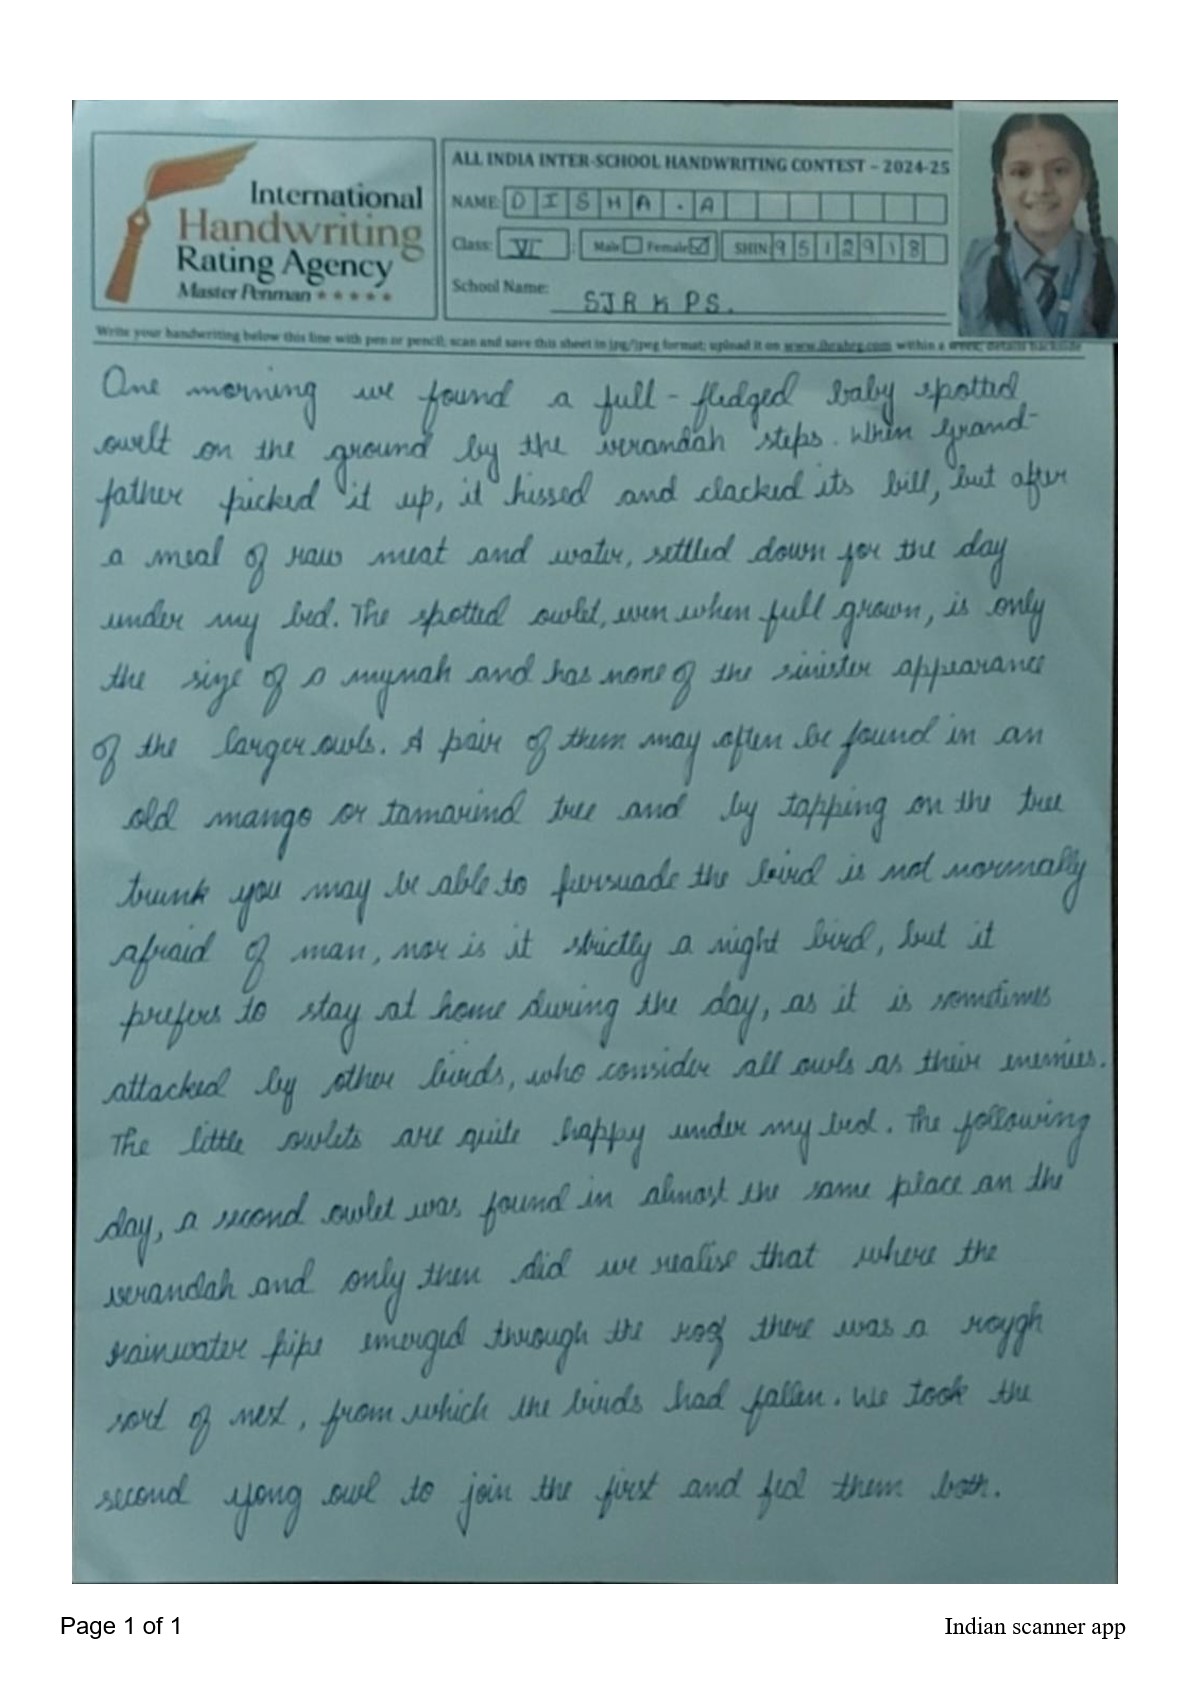 International
Handwriting
Rating Agency
Master Penman
ALL INDIA INTER-SCHOOL HANDWRITING CONTEST – 2024-25
NAME: DISHA.A
Class: VI Male Female SHIN: 9512918
School Name: SJR K PS.
Write your handwriting below this line with pen or pencil; scan and save this sheet in jpg/jpeg format; upload it on within a week; details backside
One morning we found a full-fledged baby spotted
owelt on the ground by the verandah steps. When grand-
father picked it up, it hissed and clacked its bill, but after
a meal of raw meat and water, settled down for the day
under my bed. The spotted owlet, even when full grown, is only
the size of a mynah and has none of the sinister appearance
of the larger owls. A pair of them may often be found in an
old mango or tamarind tree and by tapping on the tree
trunk you may be able to pursuade the bird is not normally
afraid of man, nor is it strictly a night bird, but it
prefers to stay at home during the day, as it is sometimes
attacked by other birds, who consider all owls as their enemies.
The little owlets are quite happy under my bed. The following
day, a second owlet was found in almost the same place an the
verandah and only then did we realise that where the
rainwater pipe emerged through the roof there was a rough
sort of nest, from which the birds had fallen. We took the
second yong owl to join the first and fed them both.
Page 1 of 1
Indian scanner app